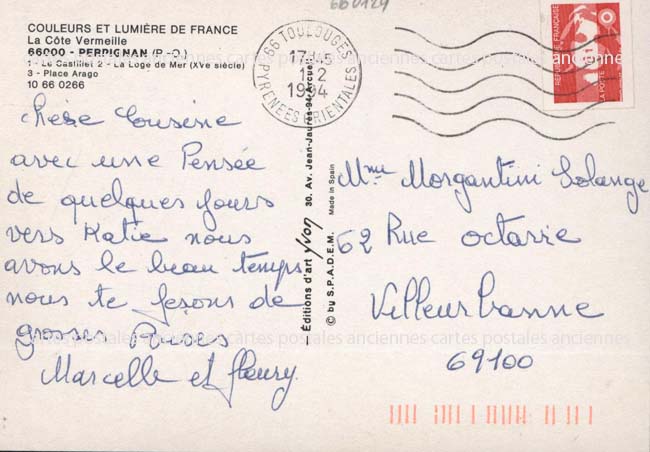 660124
COULEURS ET LUMIÈRE DE FRANCE
La Côte Vermeille
66000 - PERPIGNAN (P.-O.)
1 - Le Castillet 2 - La Loge de Mer (XVe siècle)
3 - Place Arago
10 66 0266
66 TOULOUGES
17 H 45
1 - 2
1994
PYRENEES ORIENTALES
REPUBLIQUE FRANÇAISE
LA POSTE
chère Cousine
avec une Pensée
de quelques jours
vers Katie nous
avons le beau temps
nous te fesons de
grosses Bises
Marcelle et fleury.
- Éditions d'art yvon 30, Av. Jean-Jaurès-94-Arcueil
© by S.P.A.D.E.M. Made in Spain
Mme Morgantini Solange
62 Rue octavie
Villeurbanne
69100
cartes postales anciennes cartes postales anciennes cartes postales anciennes